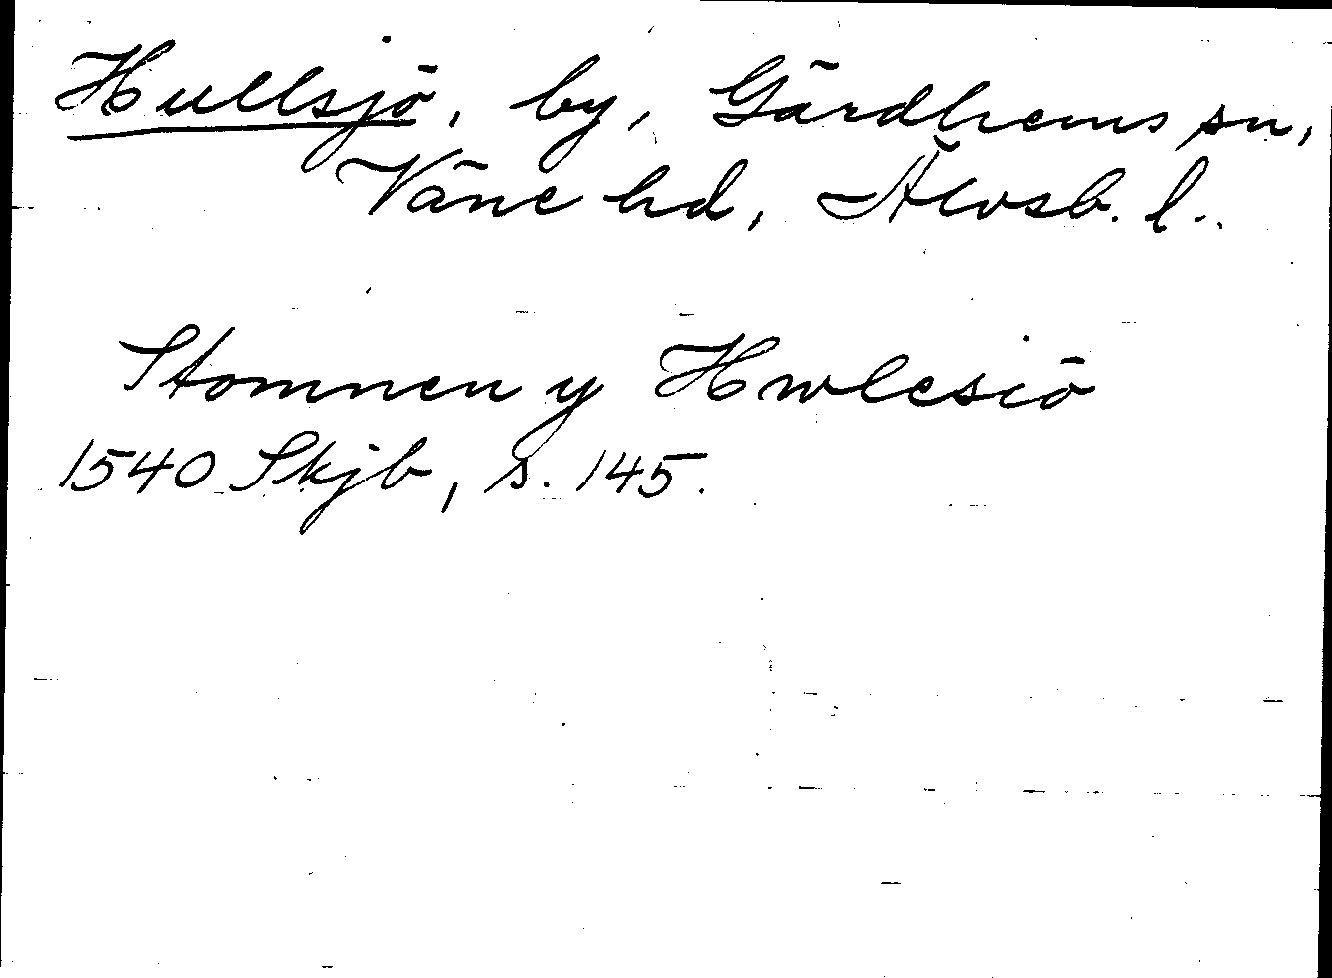 Hullsjö, by, Gärdhems sn,
Väne hd, Älvsb. l.
Stomnen y Hwlesiö
1540 Skjb, s. 145.